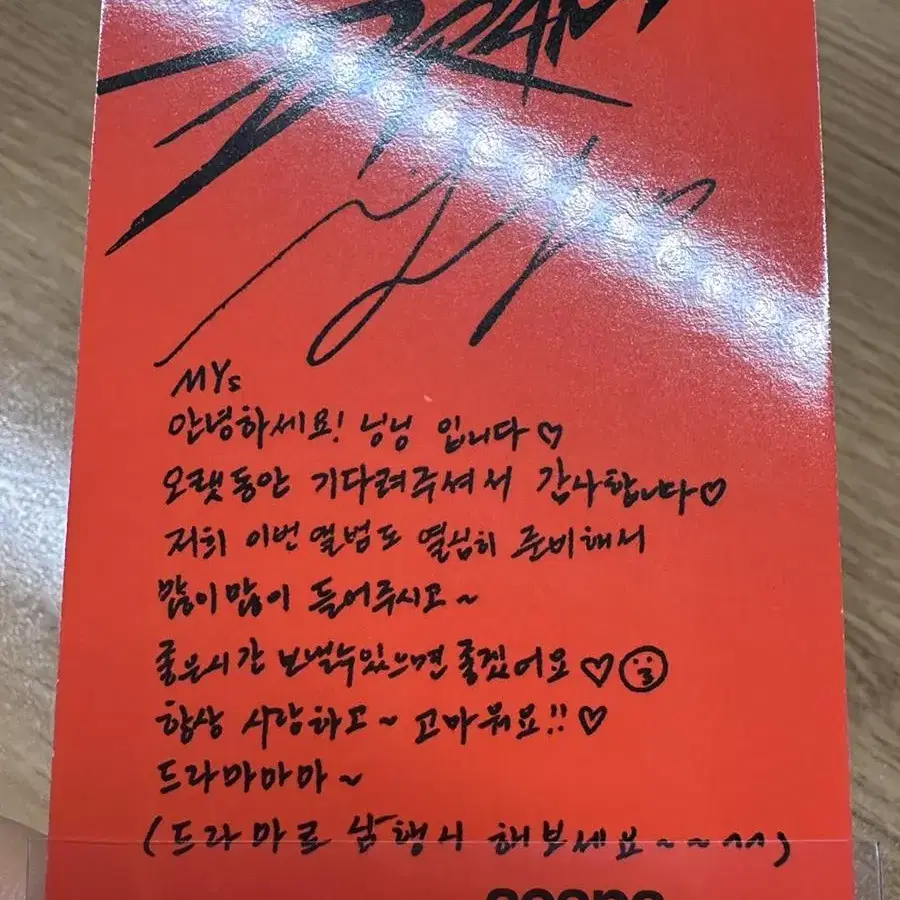 MYs
안녕하세요! 닝닝 입니다♡
오랫동안 기다려주셔서 감사합니다♡
저희 이번 앨범도 열심히 준비해서
많이많이 들어주시고~
좋은시간 보낼수있으면 좋겠어요♡
항상 사랑하고~ 고마워요!!♡
드라마마마~
(드라마로 삼행시 해보세요~~^^)